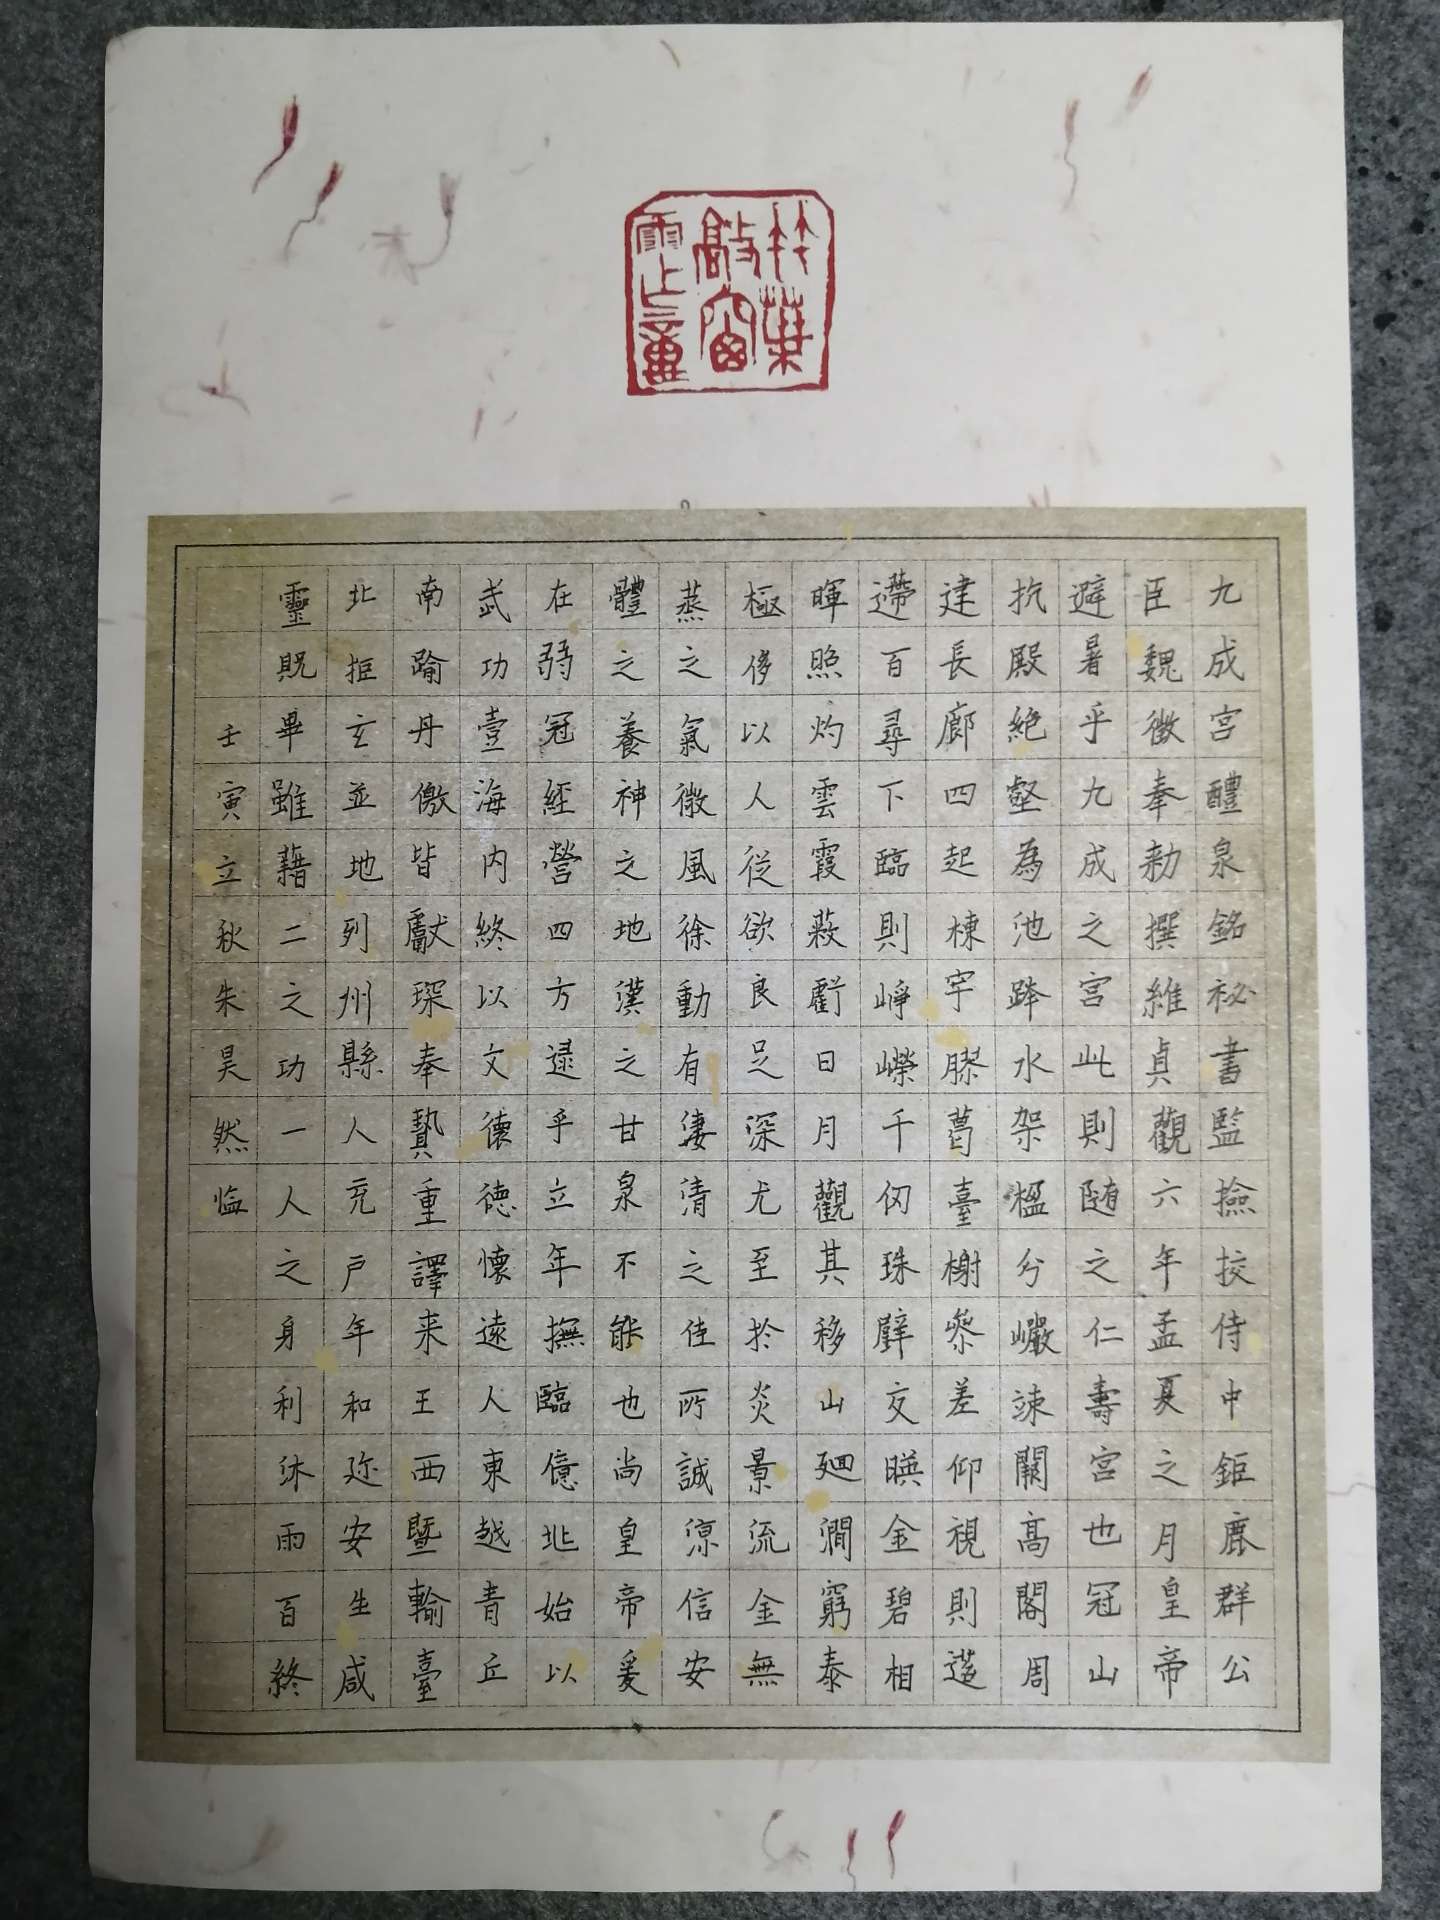 竹葉
敲窗
九成宮醴泉銘祕書監撿挍侍中鉅鹿群公
臣魏徵奉勅撰維貞觀六年孟夏之月皇帝
避暑乎九成之宮此則随之仁壽宮也冠山
抗殿絶壑為池跨水架楹分巖竦闕高閣周
建長廊四起棟宇膠葛臺榭參差仰視則迢
遰百尋下臨則崢嶸千仞珠璧交暎金碧相
暉照灼雲霞蔽虧日月觀其移山廻澗窮泰
極侈以人從欲良足深尤至於炎景流金無
蒸之氣微風徐動有淒清之佳所誠涼信安
體之養神之地漢之甘泉不能也尚皇帝爰
在弱冠經營四方逮乎立年撫臨億兆始以
武功壹海内終以文德德懷遠人東越青丘
南踰丹徼皆獻琛奉贄重譯来王西暨輪臺
北拒玄並地列州縣人充戶年和迩安生咸
靈貺畢雖藉二之功一人之身利沐雨百終
壬寅立秋朱昊然临